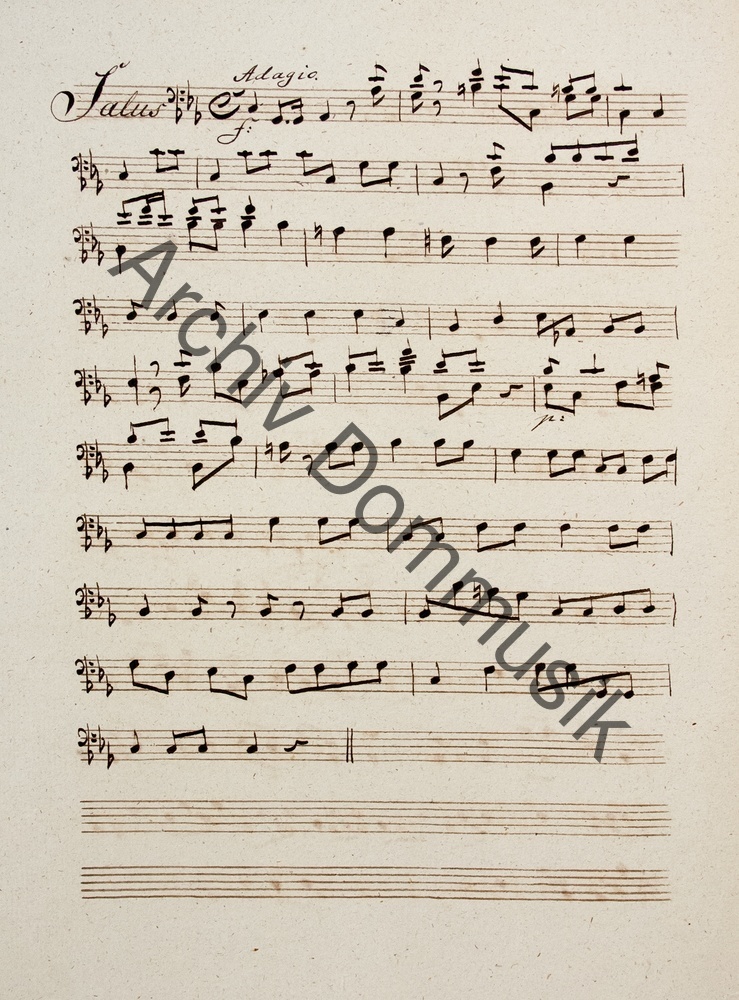 Adagio.
Salus
f:
p:
Archiv Dommusik